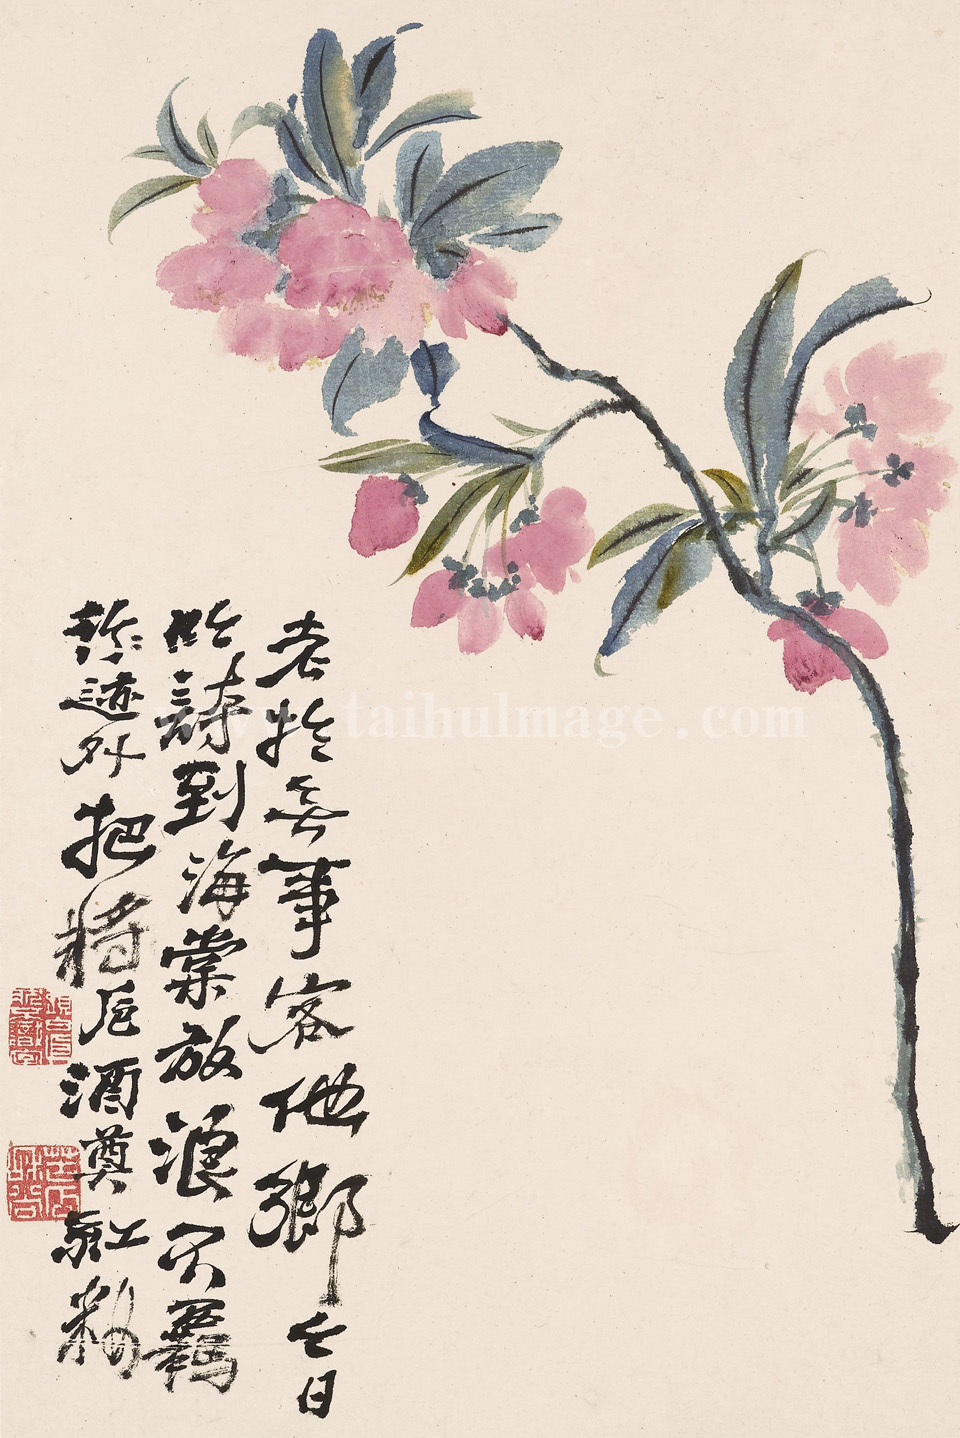 老於無事客他鄉今日
吟詩到海棠放浪不羈
形迹外把將卮酒奠紅粧
www.taihuImage.com